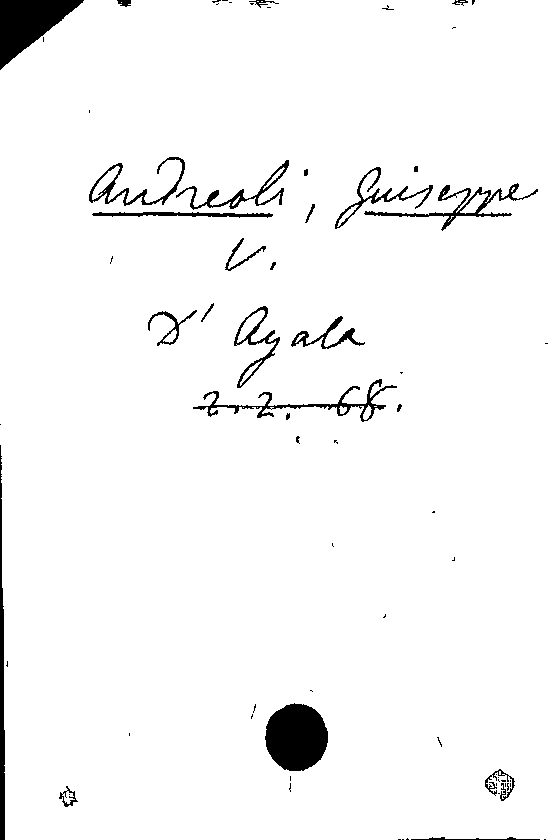 Andreoli, Guiseppe
V.
D' Ayala
2. 2. 68.